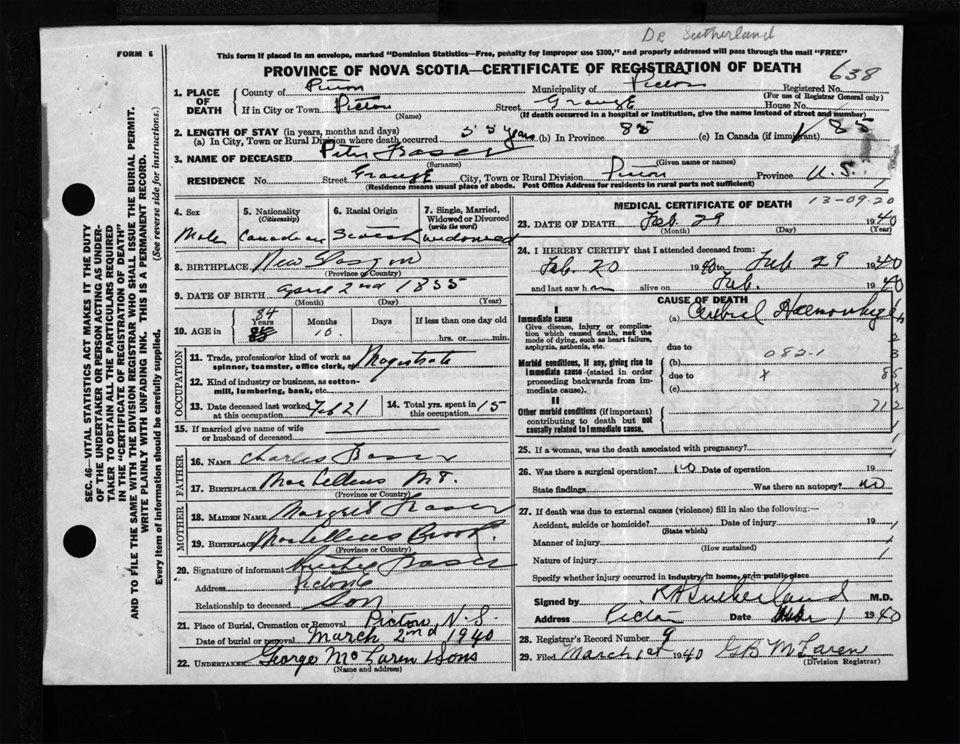 Dr Sutherland
FORM 6
This form if placed in an envelope, marked "Dominion Statistics—Free, penalty for improper use $300," and properly addressed will pass through the mail "FREE"
PROVINCE OF NOVA SCOTIA—CERTIFICATE OF REGISTRATION OF DEATH
638
1. PLACE OF DEATH
County of Pictou Municipality of Pictou Registered No.
(For use of Registrar General only)
If in City or Town Pictou Street House No.
(Name) (If death occurred in a hospital or institution, give the name instead of street and number)
2. LENGTH OF STAY (in years, months and days)
(a) In City, Town or Rural Division where death occurred 55 years (b) In Province 85 (c) In Canada (if immigrant) 85
3. NAME OF DECEASED Peter Fraser
(Surname) (Given name or names)
RESIDENCE No. Street City, Town or Rural Division Pictou Province N.S.
(Residence means usual place of abode. Post Office Address for residents in rural parts not sufficient)
4. Sex
Male
5. Nationality (Citizenship)
Canadian
6. Racial Origin
Scotch
7. Single, Married, Widowed or Divorced (write the word)
Widowed
8. BIRTHPLACE New Glasgow
(Province or Country)
9. DATE OF BIRTH April 2nd 1855
(Month) (Day) (Year)
10. AGE in 84 Years Months 10 Days If less than one day old
hrs. or min.
OCCUPATION
11. Trade, profession or kind of work as spinner, teamster, office clerk, etc. Magistrate
12. Kind of industry or business, as cotton-mill, lumbering, bank, etc.
13. Date deceased last worked at this occupation Feb 21
14. Total yrs. spent in this occupation 15
15. If married give name of wife or husband of deceased
FATHER
16. NAME Charles Fraser
17. BIRTHPLACE MacLellans Mt.
(Province or Country)
MOTHER
18. MAIDEN NAME Margret Fraser
19. BIRTHPLACE MacLellans Brook.
(Province or Country)
20. Signature of informant Fraser
Address Pictou
Relationship to deceased Son
21. Place of Burial, Cremation or Removal Pictou, N.S.
Date of burial or removal March 2nd 1940
22. UNDERTAKER George McLaren & Sons
(Name and address)
MEDICAL CERTIFICATE OF DEATH
13-09-20
23. DATE OF DEATH Feb 29 1940
(Month) (Day) (Year)
24. I HEREBY CERTIFY that I attended deceased from:
Feb. 20 1940 to Feb 29 1940
and last saw him alive on Feb. 1940
CAUSE OF DEATH
I
Immediate cause
Give disease, injury or complication which caused death, not the mode of dying, such as heart failure, asphyxia, asthenia, etc.
(a) Cerebral Haemorrhage
due to
Morbid conditions, if any, giving rise to immediate cause (stated in order proceeding backwards from immediate cause).
(b) 082-1
due to x
(c)
II
Other morbid conditions (if important) contributing to death but not causally related to immediate cause.
1
2
3
85
x
712
1
25. If a woman, was the death associated with pregnancy?
26. Was there a surgical operation? no Date of operation 19
State findings Was there an autopsy? no
27. If death was due to external causes (violence) fill in also the following:—
Accident, suicide or homicide? Date of injury 19
(State which)
Manner of injury
(How sustained)
Nature of injury
Specify whether injury occurred in industry, in home, or in public place
Signed by Sutherland M.D.
Address Pictou Date Mar 1 1940
28. Registrar's Record Number 9
29. Filed March 1st 1940 GB McLaren
(Division Registrar)
SEC. 46—VITAL STATISTICS ACT MAKES IT THE DUTY
OF THE UNDERTAKER OR PERSON ACTING AS UNDER-
TAKER TO OBTAIN ALL THE PARTICULARS REQUIRED
IN THE "CERTIFICATE OF REGISTRATION OF DEATH"
AND TO FILE THE SAME WITH THE DIVISION REGISTRAR WHO SHALL ISSUE THE BURIAL PERMIT.
WRITE PLAINLY WITH UNFADING INK. THIS IS A PERMANENT RECORD.
Every item of information should be carefully supplied. (See reverse side for instructions.)